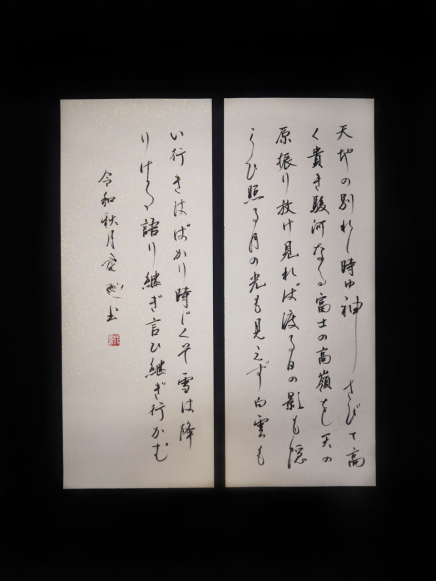 天地の別れし時ゆ神さびて高
く貴き駿河なる富士の高嶺を天の
原振り放け見れば渡る日の影も隠
らひ照る月の光も見えず白雲も
い行きはばかり時じくそ雪は降
りける語り継ぎ言ひ継ぎ行かむ
令和秋月 書